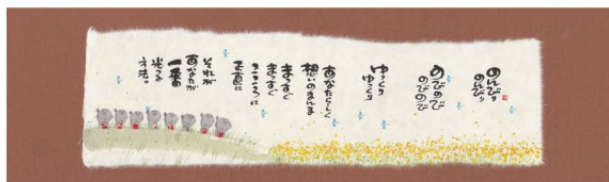 のんびり
のんびり
のびのび
のびのび
ゆっくり
ゆっくり
あなたらしく
想いのまんま
まっすぐ
まっすぐ
こころに
正直に
それが
あなたが
一番の
光る
方法。